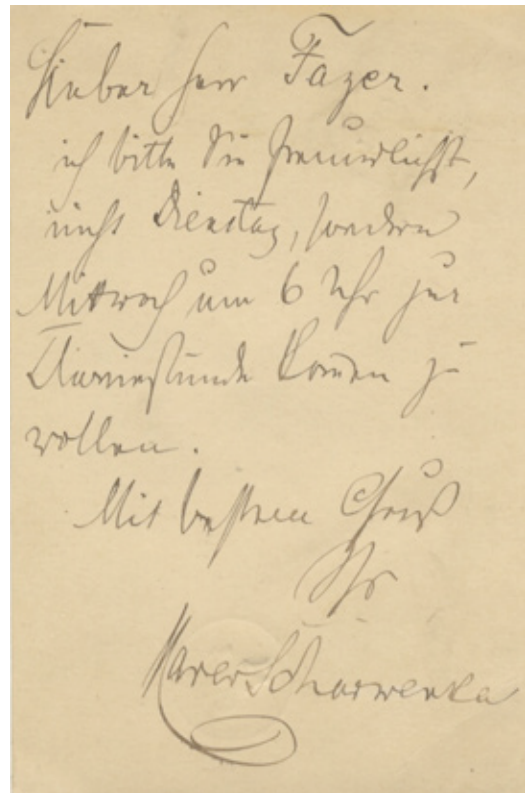 Lieber Herr Fazer.
ich bitte Sie freundlichst,
nicht Dienstag, sondern
Mittwoch um 6 Uhr zur
Clavierstunde kom̄en zu
wollen.
Mit bestem Gruß
Ihr
Xaver Scharwenka